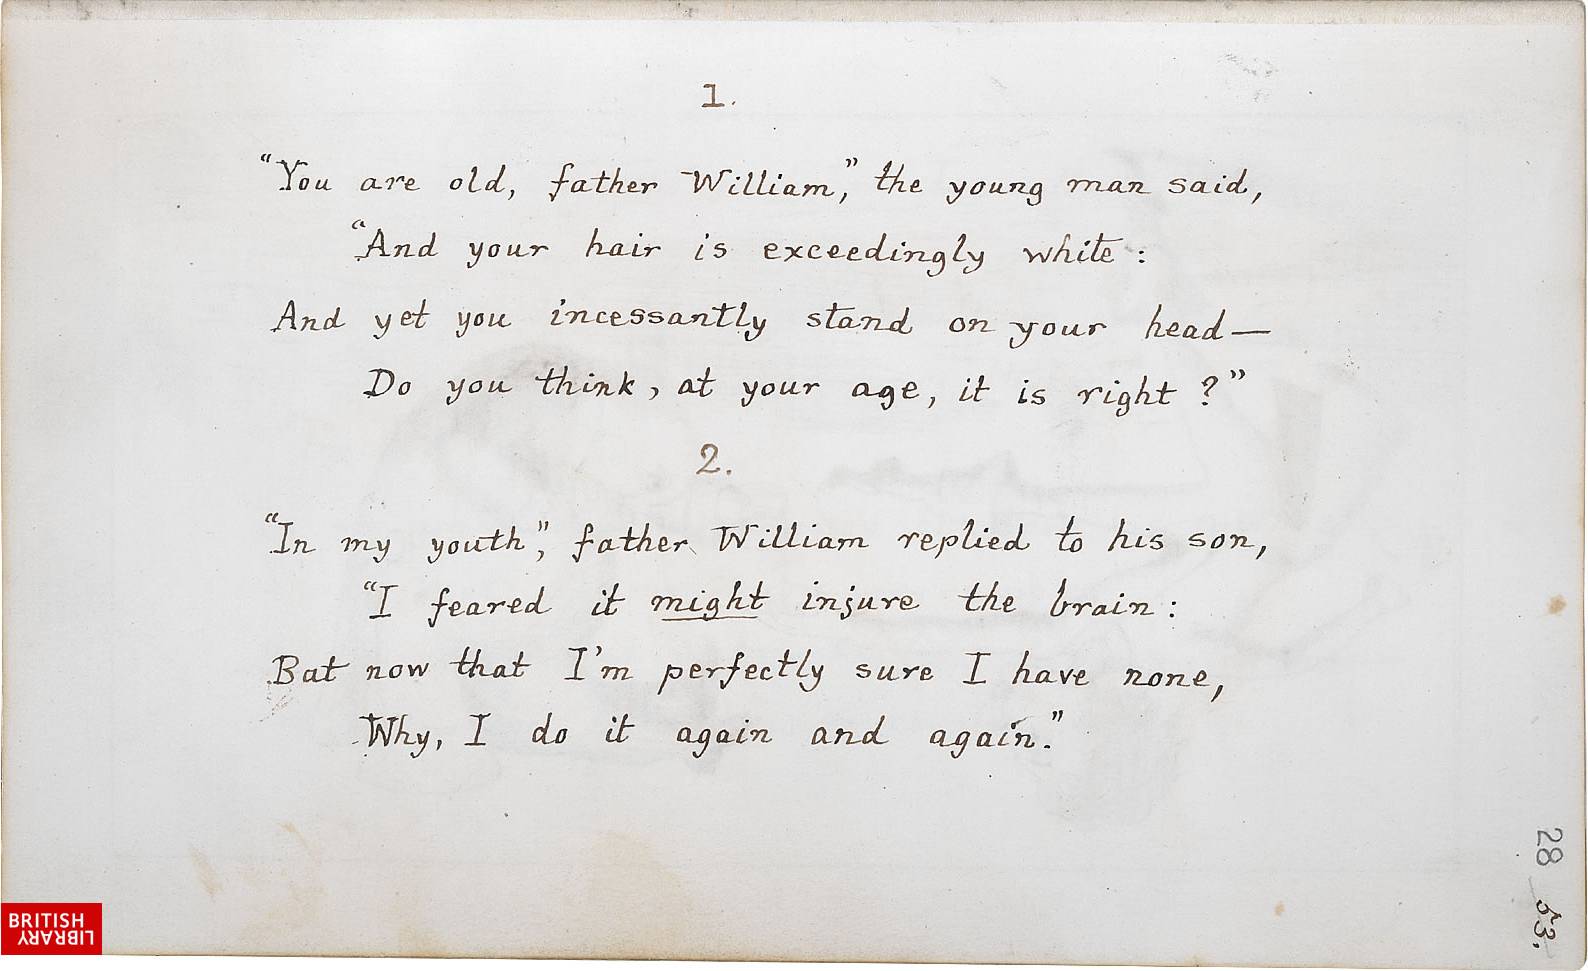 1.
“You are old, father William,” the young man said,
“And your hair is exceedingly white :
And yet you incessantly stand on your head—
Do you think, at your age, it is right ?”
2.
“In my youth,” father William replied to his son,
“I feared it might injure the brain :
But now that I'm perfectly sure I have none,
Why, I do it again and again.”
28
53.
BRITISH
LIBRARY